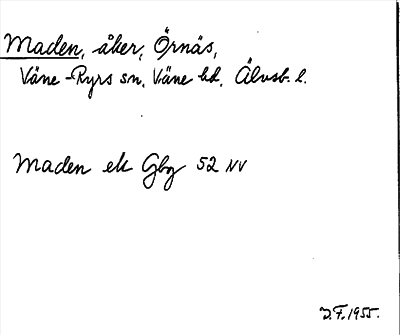 Maden, åker, Örnäs,
Väne-Ryrs sn, Väne hd, Älvsb. l.
Maden ek Gbg 52 NV
J.F. 1955.